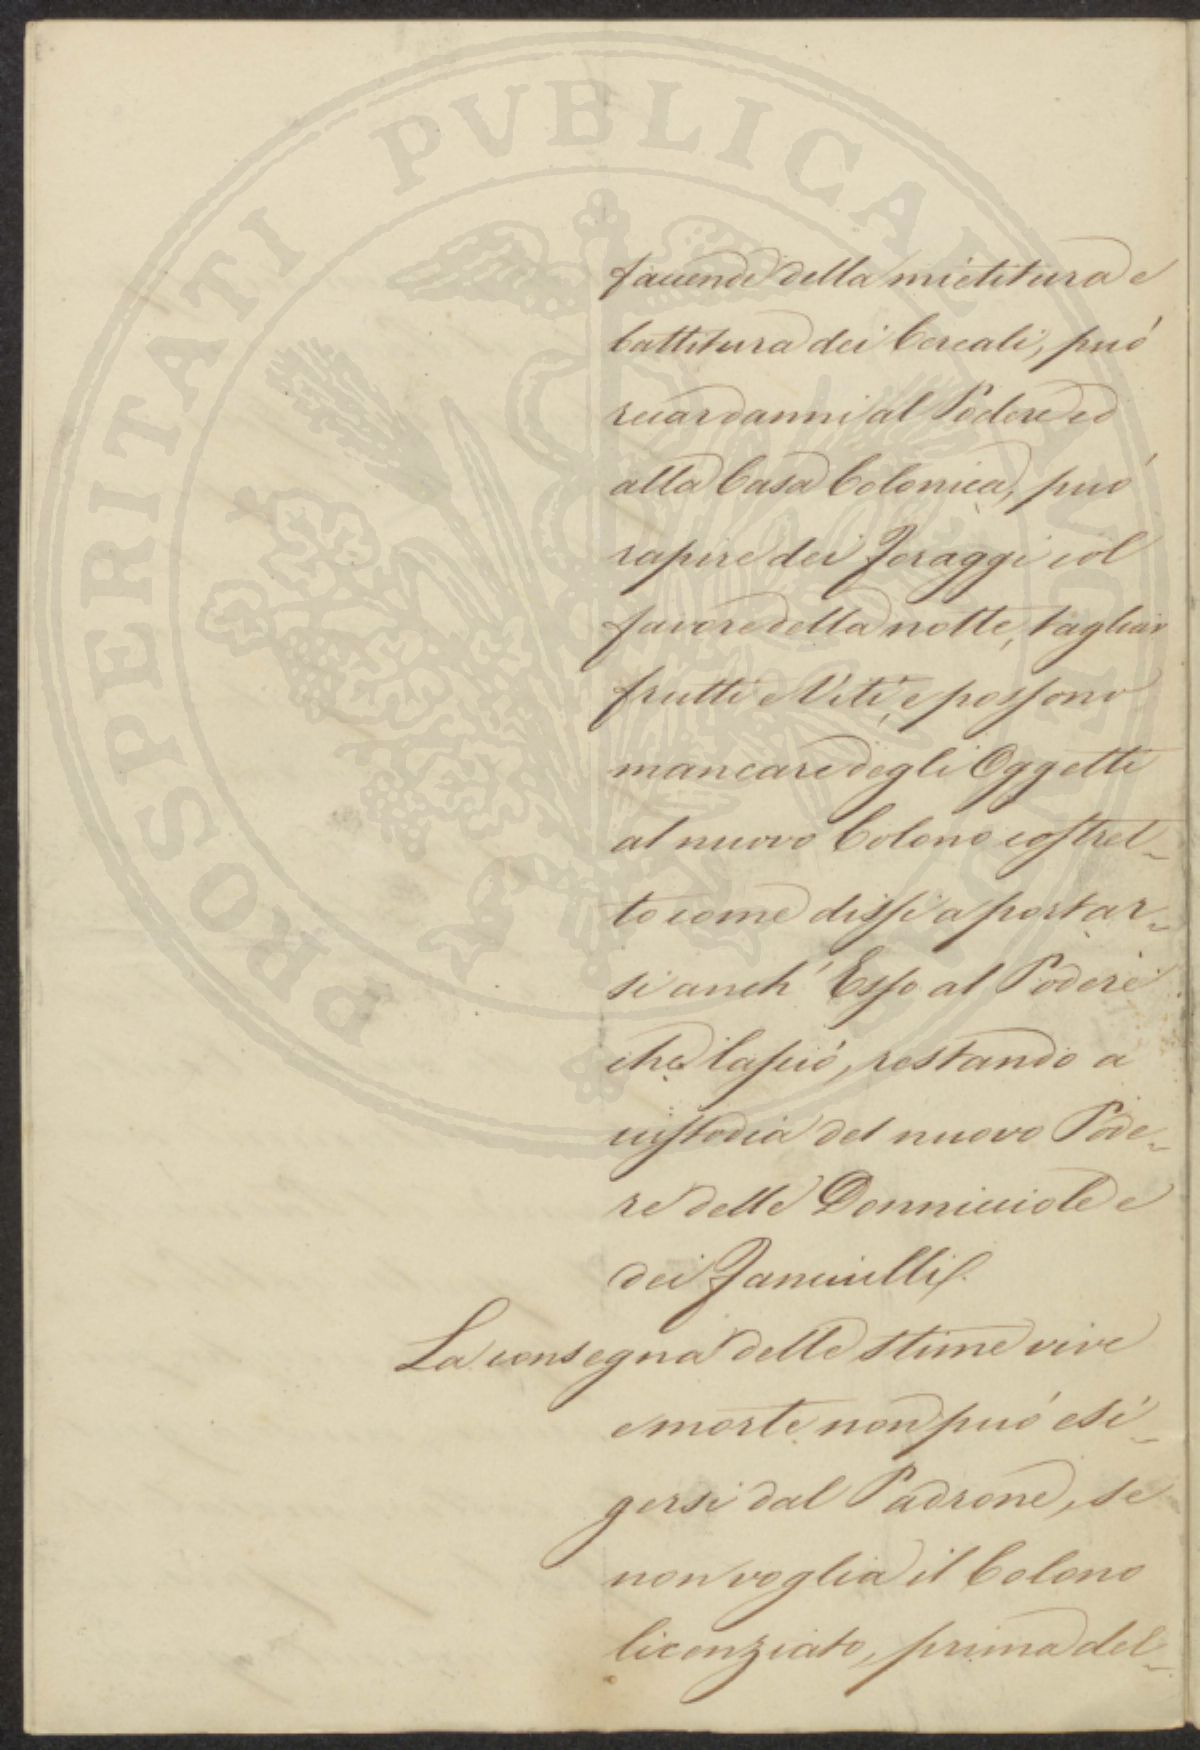 PROSPERITATI PVBLICAE AVGENDAE
faccende della mietitura e
battitura dei Cereali, può
recar danni al Podere ed
alla Casa Colonica, può
rapire dei Foraggi col
favore della notte, tagliar
frutti e Viti, e possono
mancare degli Oggetti
al nuovo Colono costret-
to come dissi a portar-
si anch' Esso al Podere
che lasciò, restando a
custodia del nuovo Pode-
re delle Donnicciole e
dei Fanciulli.
La consegna delle stime vive
e morte non può esi-
gersi dal Padrone, se
non voglia il Colono
licenziato, prima del-